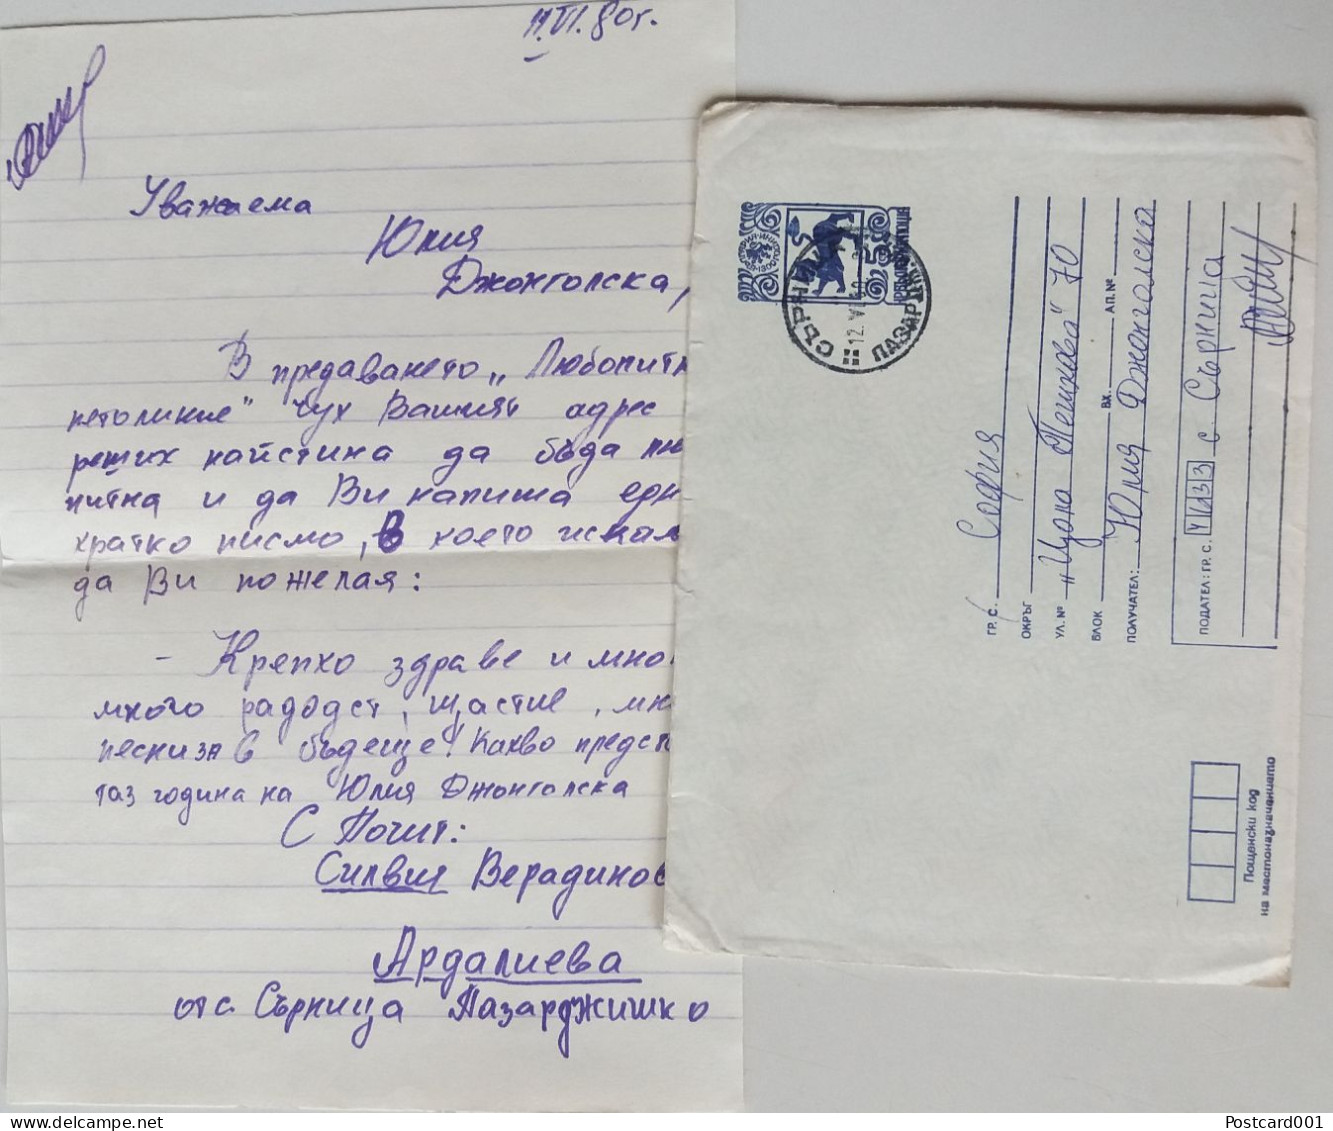 11.VI.80г.
Уважаема
Юлия
Джонголска,
В предаването „Любопитн
петолиние" чух Вашият адрес
реших наистина да бъда лю
питна и да Ви напиша едн
кратко писмо, в което искам
да Ви пожелая:
- Крепко здраве и мно
много радодст, щастие, мн
песни за в бъдеще! Какво предст
таз година на Юлия Джонголска
С Почит:
Силвия Верадинов
Ардалиева
от с. Сърница Пазарджишко
СЪРНИЦА
12.VI.80
ПАЗАРДЖ
5
ГР. С. София
ОКРЪГ
УЛ. № „Цола Пешкова" 70
БЛОК ВХ. АП. №
ПОЛУЧАТЕЛ: Юлия Джонголска
ПОДАТЕЛ: ГР. С. 4633 с Сърница
Пощенски код
на местоназначението
Postcard001